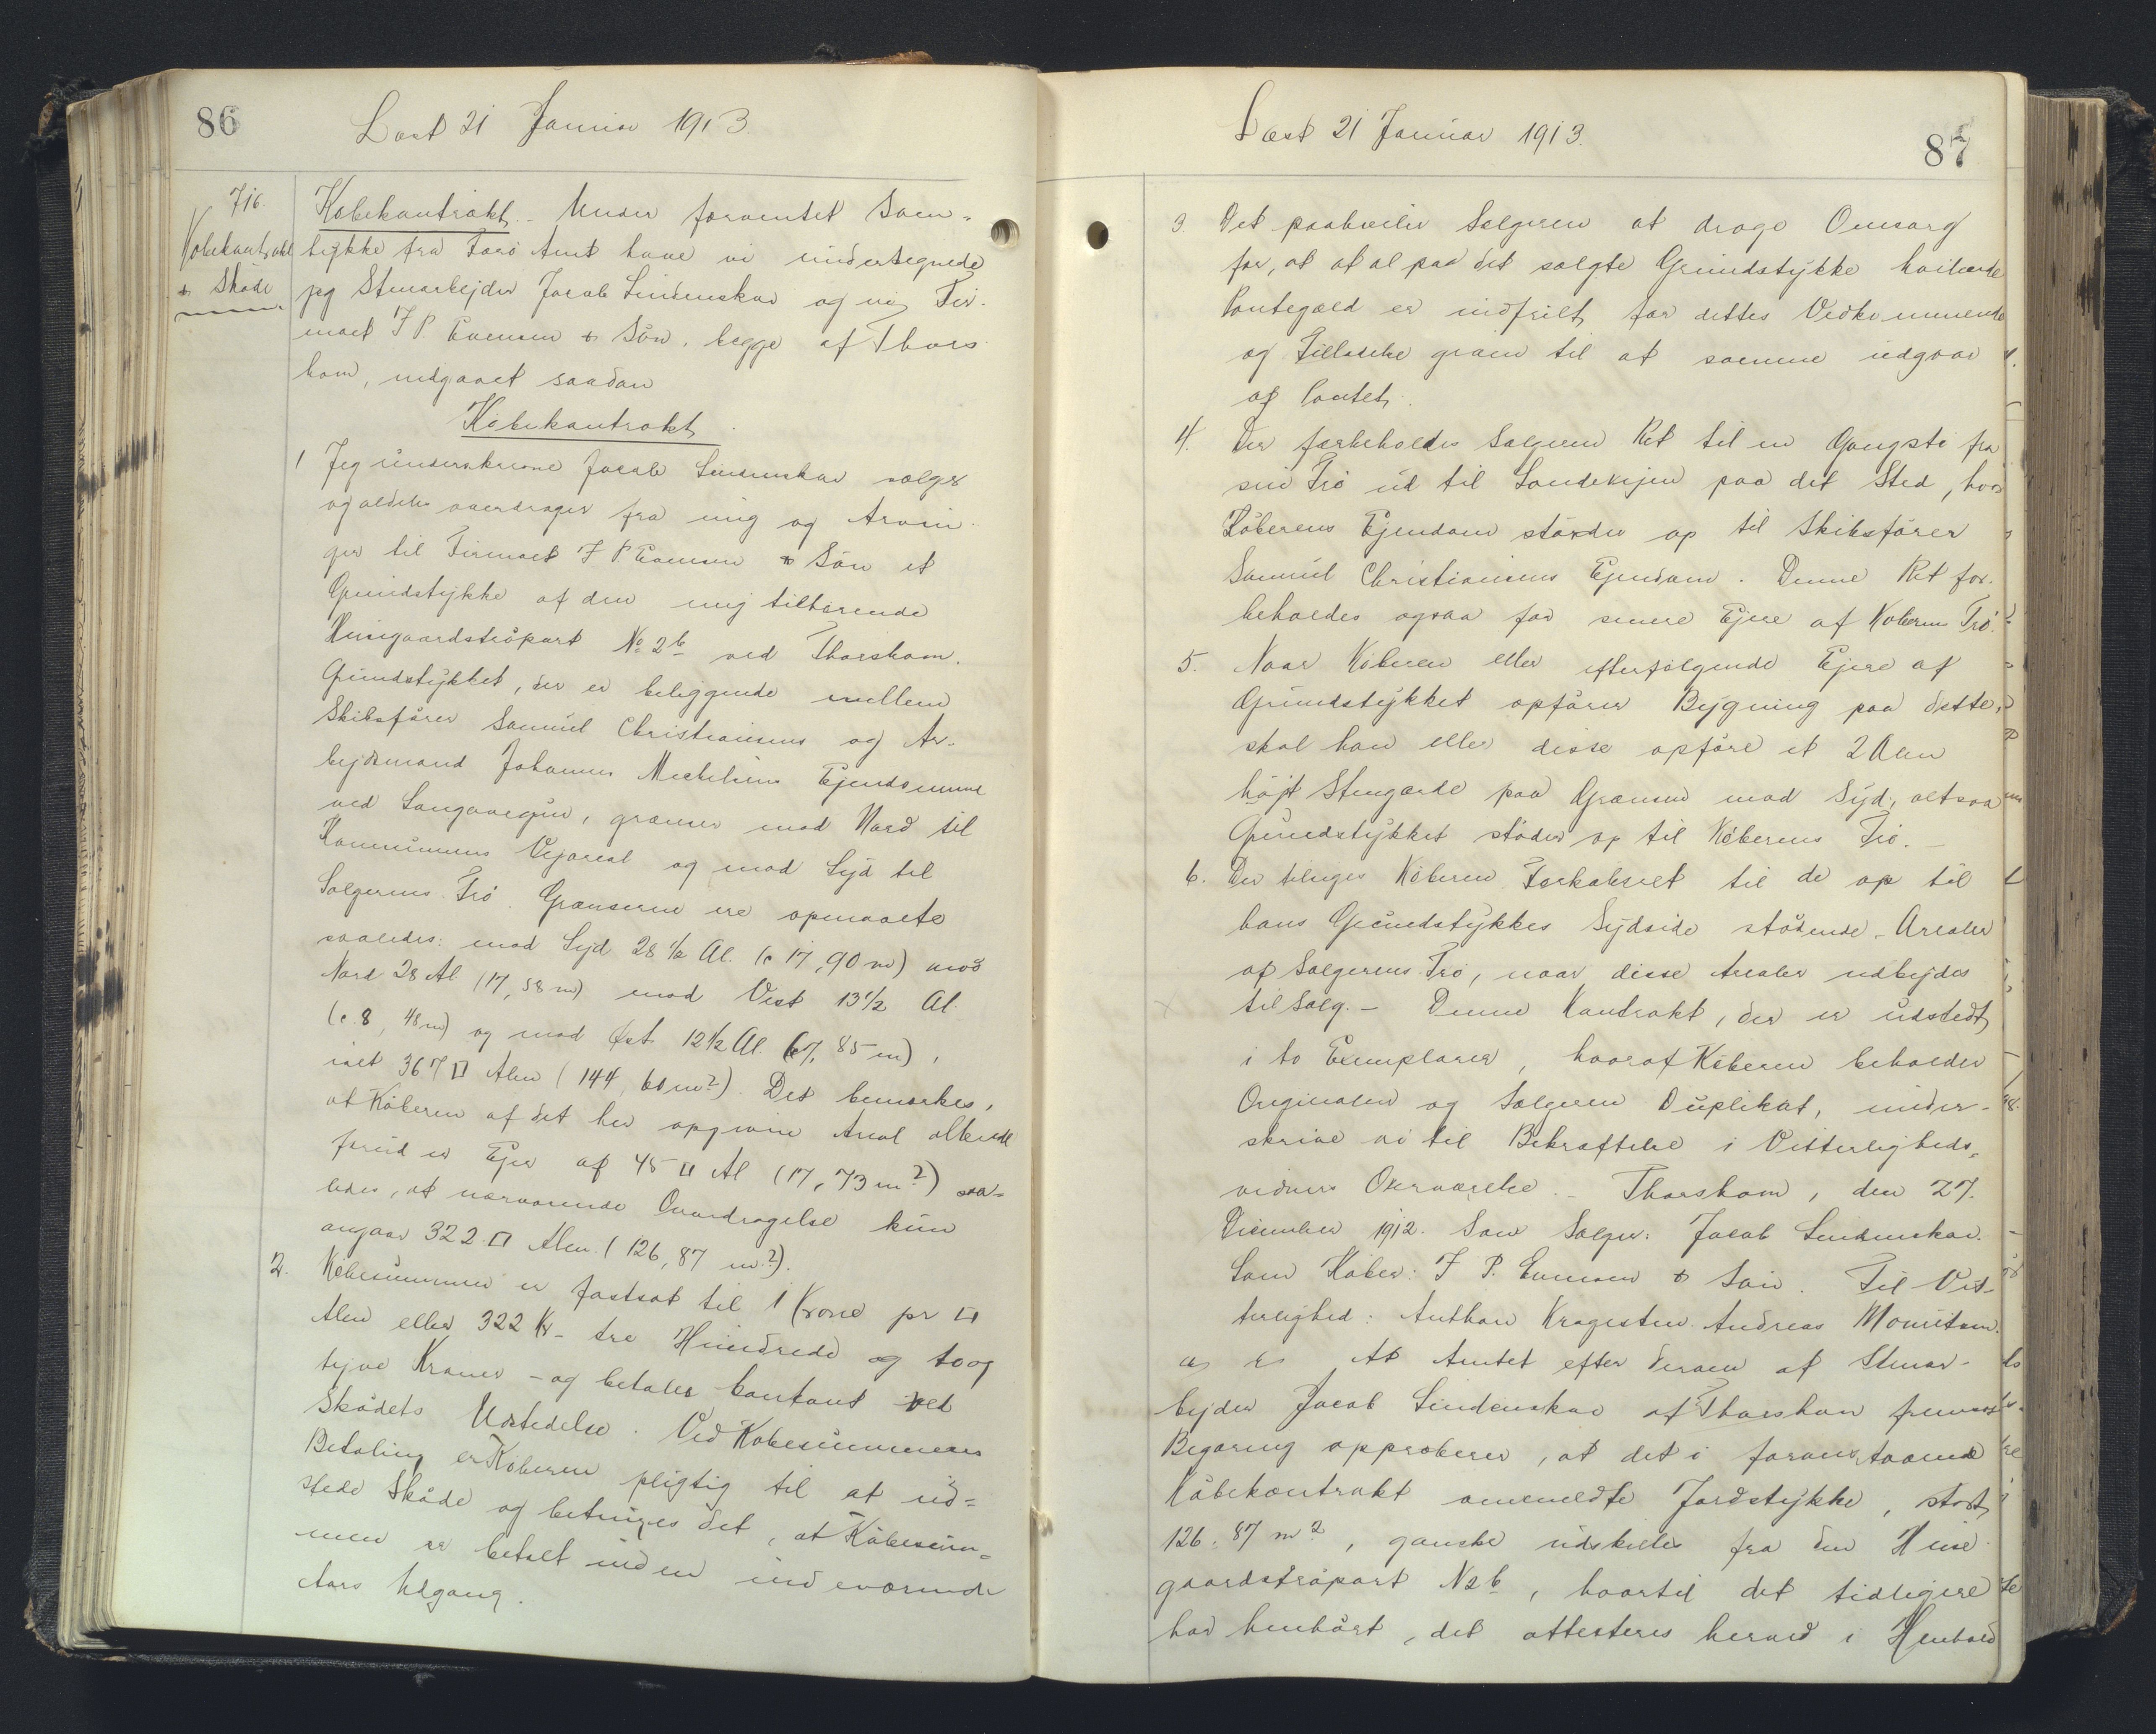 86
Læst 21 Januar 1913.
716.
Købekontrakt
& Skøde
Købekontrakt. - Under forventet Sam-
tykke fra Færø Amt have vi undertegnede
jeg Stenarbejder Jacob Lindenskov og vi, Fir-
maet J P. Evensen & Søn, begge af Thors
havn, indgaaet saadan
Købekontrakt.
1 Jeg underskrevne Jacob Lindenskov sælger
og aldeles overdrager fra mig og Arvin-
ger til Firmaet J P Evensen & Søn et
Grundstykke af den mig tilhørende
Husegaardstrøpart No 2b ved Thorshavn.
Grundstykket, der er beliggende mellem
Skibsfører Samuel Christiansens og Ar-
bejdsmand Johannes Michelsens Ejendomme
ved Landevejen, grænser mod Nord til
Kommunens Vejareal og mod Syd til
Sælgerens Trø. Grænserne ere opmaalte
saaledes: mod Syd 28 1/2 Al. (c 17,90 m) mod
Nord 28 Al (17,58 m) mod Vest 13 1/2 Al.
(c. 8,48 m) og mod Øst 12 1/2 Al. (c7,85 m),
ialt 367 □ Alen (144,60 m2). Det bemærkes,
at Køberen af det her opgivne Areal allerede
forud er Ejer af 45 □ Al (17,73 m2) saa-
ledes, at nærværende Overdragelse kun
angaar 322 □ Alen. (126,87 m2).
2. Købesummen er fastsat til 1 Krone pr □
Alen eller 322 Kr - tre Hundrede og to og
tyve Kroner - og betales kontant ved
Skødets Udstedelse. Ved Købesummens
Betaling er Køberen pligtig til at ud-
stede Skøde og betinges det, at Købesum-
men er betalt inden indeværende
Aars Udgang.
Læst 21 Januar 1913.
87
3. Det paahviler Sælgeren at drage Omsorg
for, at al paa det solgte Grundstykke hvilende
Pantegæld er indfriet for dettes Vedkommende
og Tilladelse given til at samme udgaar
af Pantet.
4. Der forbeholdes Sælgeren Ret til en Gangsti fra
sin Trø ud til Landevejen paa det Sted, hvor
Køberens Ejendom støder op til Skibsfører
Samuel Christiansens Ejendom. Denne Ret for-
beholdes ogsaa for senere Ejere af Køberens Trø.
5. Naar Køberen eller efterfølgende Ejere af
Grundstykket opfører Bygning paa dette,
skal han eller disse opføre et 2 Alen
højt Stengærde paa Grænsen mod Syd, altsaa
Grundstykket støder op til Køberens Trø. -
6. Der tilsiges Køberen Forkøbsret til de op til
hans Grundstykkes Sydside stødende Arealer
af Sælgerens Trø, naar disse Arealer udbydes
til Salg. - Denne Kontrakt, der er udstedt
i to Exemplarer, hvoraf Køberen beholder
Originalen og Sælgeren Duplikat, under-
skrive vi til Bekræftelse i Vitterligheds-
vidners Overværelse. - Thorshavn, den 27.
December 1912. Som Sælger: Jacob Lindenskov.
Som Køber: J P. Evensen & Søn. Til Vit-
terlighed: Anthon Kragesteen. Andreas Mouritsen.
At Amtet efter derom af Stenar-
bejder Jacob Lindenskov af Thorshavn fremsat
Begæring approberer, at det i foranstaaende
Købekontrakt ommeldte Jordstykke, stort
126,87 m2, ganske udskilles fra den Huse-
gaardstrøpart No 2b, hvortil det tidligere
har henhørt, det attesteres herved i Henhold